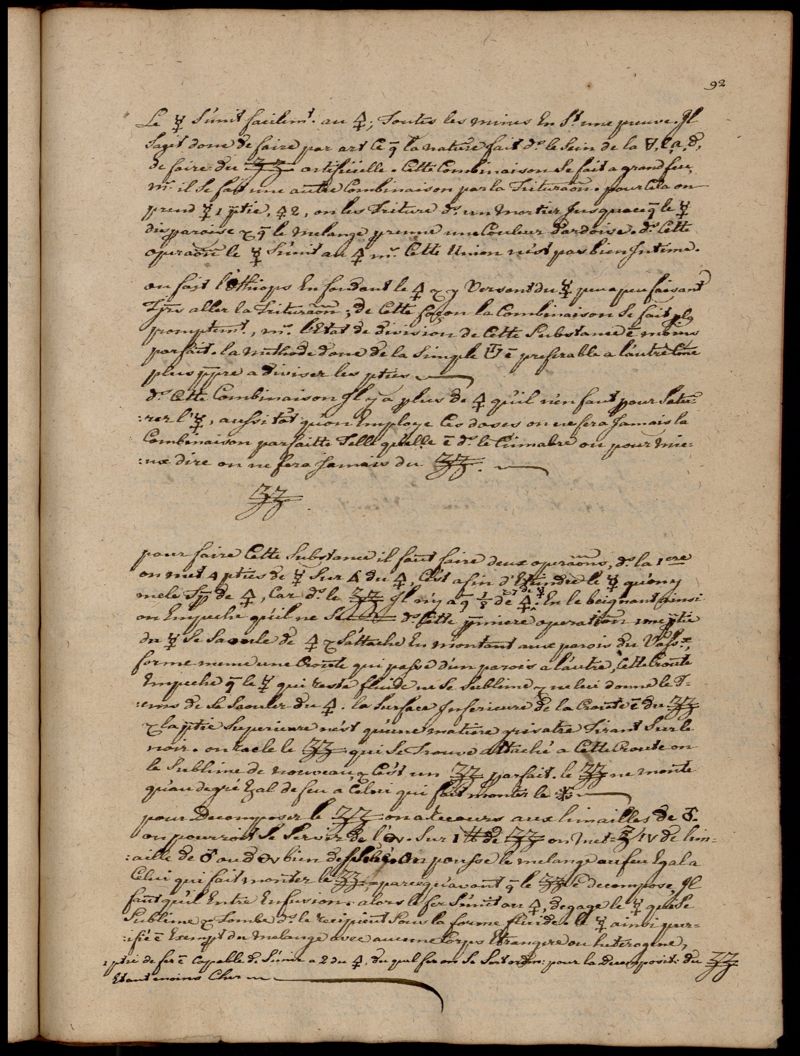 92
Le ☿ s'unit facilemt. au 🜍; toutes les mines en st. une preuve. Il
sagit donc de faire par art ce q̃ la nature fait ds. le sein de la 🜃, c. a. d.,
de faire du 33 artificielle. Cette Combinaison se fait a grand feu,
ms. il se fait une autre Combinaison par la Trituraõn. pour cela on
prend ☿ 1 ptie, 🜍 2, on les triture ds. un mortier jusquace q̃ le ☿
disparoisse & q̃ le melange prenne une Couleur dardoise. ds. Cette
operaõn le ☿ s'unit au 🜍 ms. Cette Union n'est pas bien Intime.
on fait l'Ethiops En fondant le 🜍 & y Versant du ☿ peu a peu faisant
tjrs aller la trituraõn; de Cette façon la Combinaison se fait pls
promptemt., ms. l'Etat de division de Cette Substance ẽ moins
parfait. la methode donc de la simple ẽ preferable a l'autre Cõe
plus ppre a diviser les pties
ds. Cette Combinaison Il y a plus de 🜍 qu'il n'en faut pour satu-
:rer l'☿, aussi tãt qu'on Employe ces doses on ne fera Jamais la
Combinaison parfaitte Telle qu'elle ẽ ds. le Cinnabre ou pour mie-
:ux dire on ne fera Jamais du 33.
33.
pour faire Cette Substance il faut faire deux operaõns, ds. la 1.ere
on met 4 pties de ☿ Sur 1 du 🜍, C'est afin d'Etendre le ☿ qu'on y
mele de 🜍, Car ds. le 33 Il n'y a q̃ 1/8 de 🜍. En le beignant ainsi
on Empeche qu'il ne ds. Cette pmiere operation une ptie
du ☿ se saoule de 🜍 & s'attache En montant aux parois du Vasse,
forme meme une Croute qui passe d'un parois a l'autre, Cette Croute
Empeche q̃ le ☿ qui reste fluide ne se sublime & ne lui donne le t-
:ems de se saouler du 🜍. la surface Inferieure de la Croute ẽ du 33
& la ptie superieure n'est qu'une matiere grisatre tirant sur le
noir. on racle le 33 qui se trouve attaché a Cette Croute on
le sublime de nouveau & C'est un 33 parfait. le 33 ne monte
qu'au degré Egal de feu a Celui qui fait monter le ✱
pour Decomposer le 33 on a recours aux limailles de ♂.
on pourroit se servir de l'. Sur 1 ℔ de 33 on met ℥ IV de lim-
:aille de ♂ ou d' bien On pousse le melange au feu Egal a
Celui qui fait monter le 33, parcequ'avant q̃ le 33 ẽ decomposé, Il
faut qu'il Entre En fusion. alors le fer s'unit au 🜍, degage le ☿ qui se
sublime & tombe ds. le recipient sous la forme fluide. le ☿ ainsi pur-
:ifié ẽ Exempt du melange avec aucune Corps Etrangere ou heterogene,
1 ptie de fer ẽ Capable de s'unir a 2 du 🜍. du quel fer on se sert ordin: pour la Decompositi: du 33
Etant moins Cher